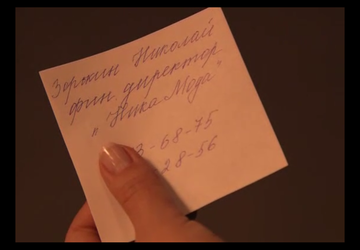 Зоркин Николай
фин. директор
"Ника Мода"
3-68-75
28-56